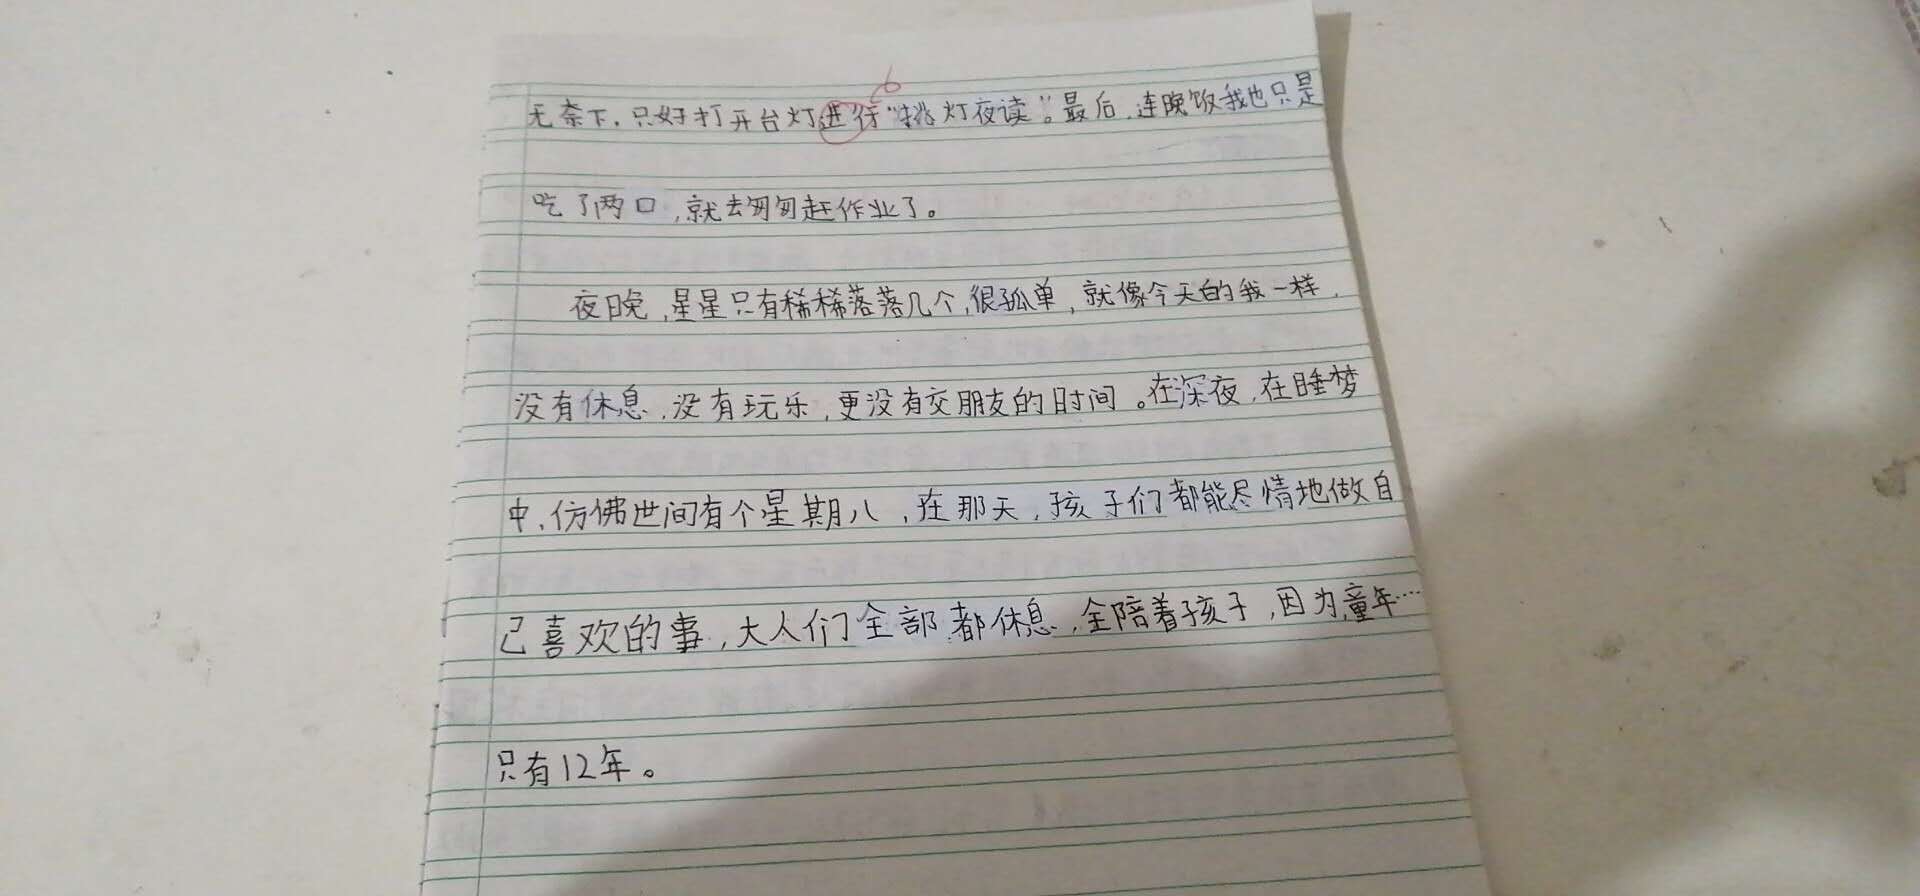 无奈下，只好打开台灯进行“挑灯夜读”。最后，连晚饭我也只是
吃了两口，就去匆匆赶作业了。
夜晚，星星只有稀稀落落几个，很孤单，就像今天的我一样，
没有休息，没有玩乐，更没有交朋友的时间。在深夜，在睡梦
中，仿佛世间有个星期八，在那天，孩子们都能尽情地做自
己喜欢的事，大人们全部都休息，全陪着孩子，因为，童年……
只有12年。